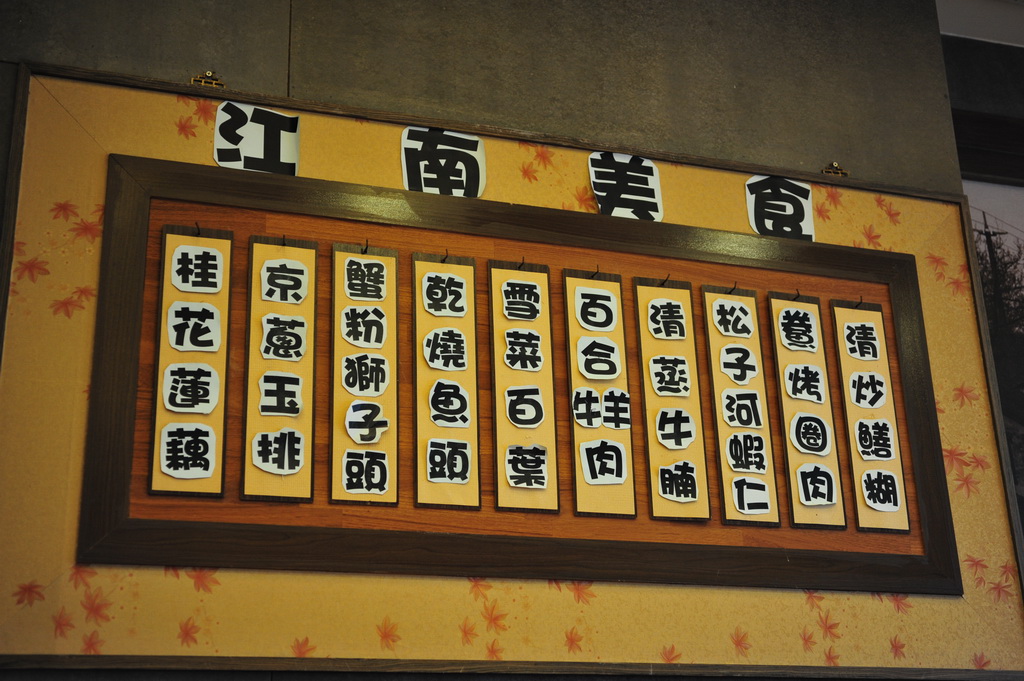 江南美食
桂花蓮藕
京蔥玉排
蟹粉獅子頭
乾燒魚頭
雪菜百葉
百合牛羊肉
清蒸牛腩
松子河蝦仁
鯗烤圈肉
清炒鱔糊